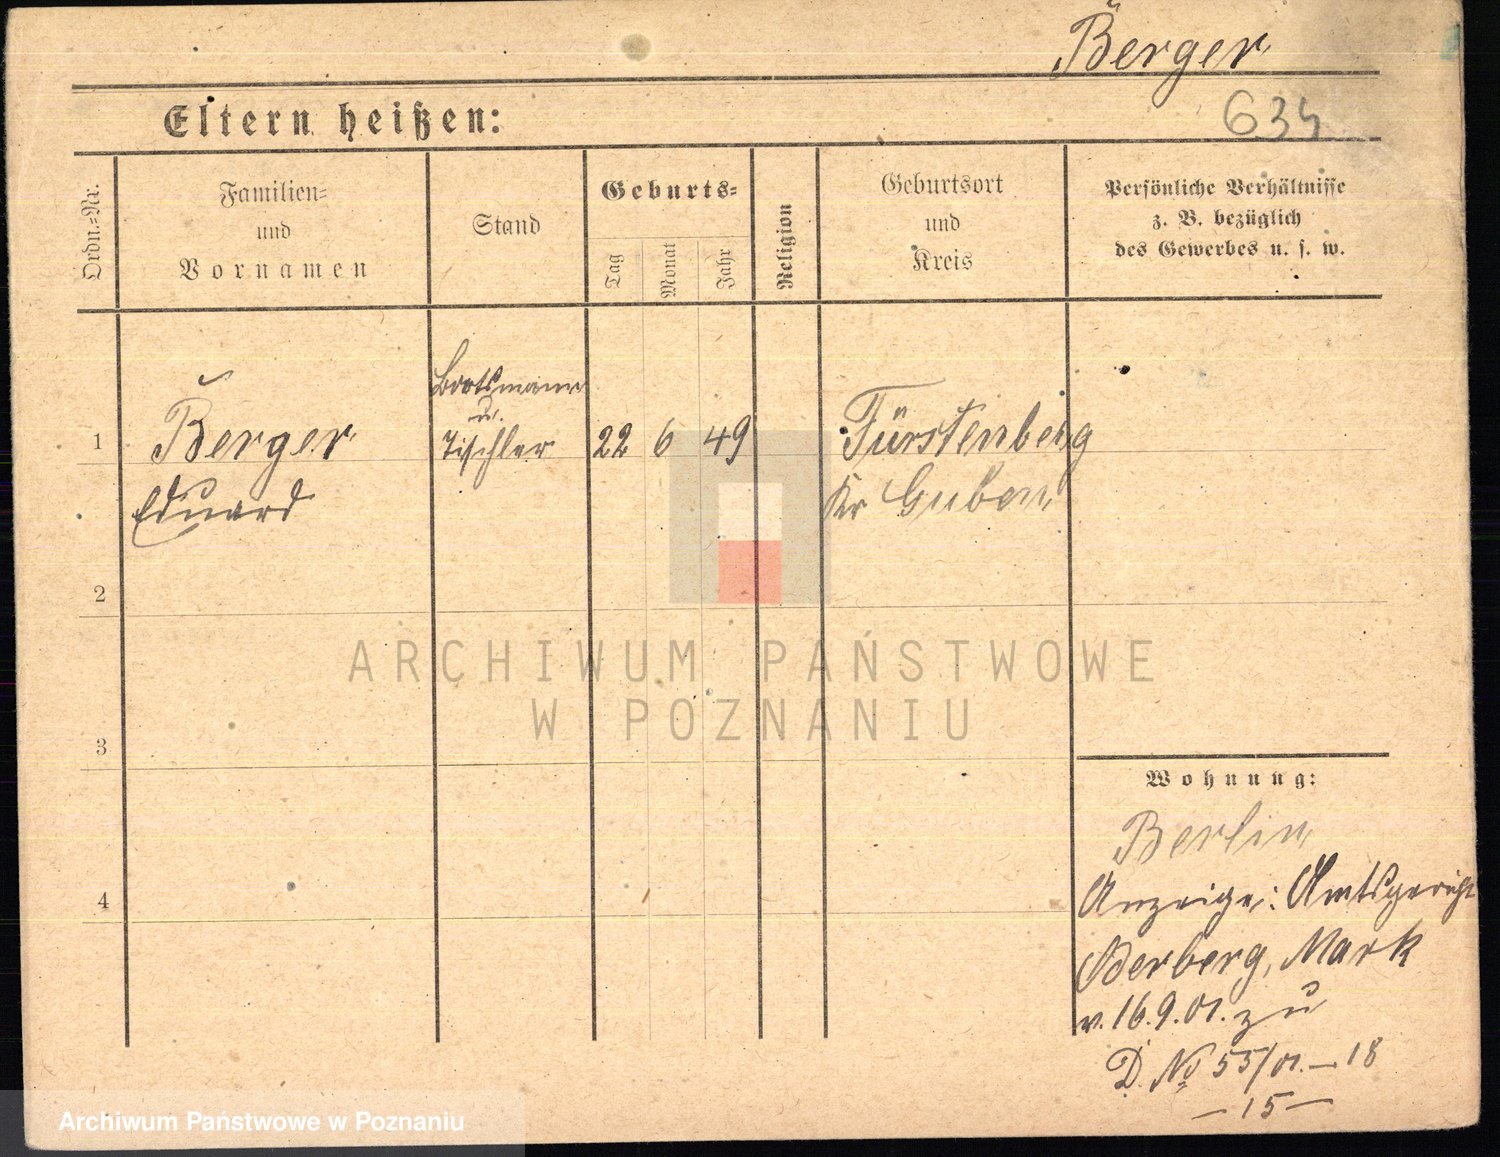 Berger
634
Eltern heißen:
Ordn.-Nr.
Familien-
und
Vornamen
Stand
Geburts-
Tag
Monat
Jahr
Religion
Geburtsort
und
Kreis
Persönliche Verhältnisse
z. B. bezüglich
des Gewerbes u. s. w.
1
Berger
Eduard
Bootsmann
u.
Tischler
22 6 49
Fürstenberg
Kr Guben
2
3
4
Wohnung:
Berlin
Anzeige: Amtsgericht
Oderberg, Mark
v. 16.9.01. zu
D. No 55/01. — 18
— 15 —
ARCHIWUM PAŃSTWOWE
W POZNANIU
Archiwum Państwowe w Poznaniu